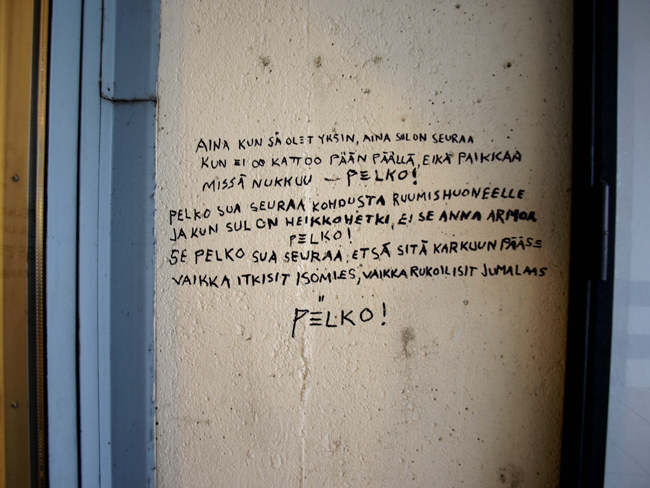 AINA KUN SÄ OLET YKSIN, AINA SUL ON SEURAA
KUN EI OO KATTOO PÄÄN PÄÄLLÄ, EIKÄ PAIKKAA
MISSÄ NUKKUU — PELKO!
PELKO SUA SEURAA KOHDUSTA RUUMISHUONEELLE
JA KUN SUL ON HEIKKO HETKI, EI SE ANNA ARMOA
PELKO!
SE PELKO SUA SEURAA, ETSÄ SITÄ KARKUUN PÄÄSE
VAIKKA ITKISIT ISO MIES, VAIKKA RUKOILISIT JUMALAAS
PELKO!